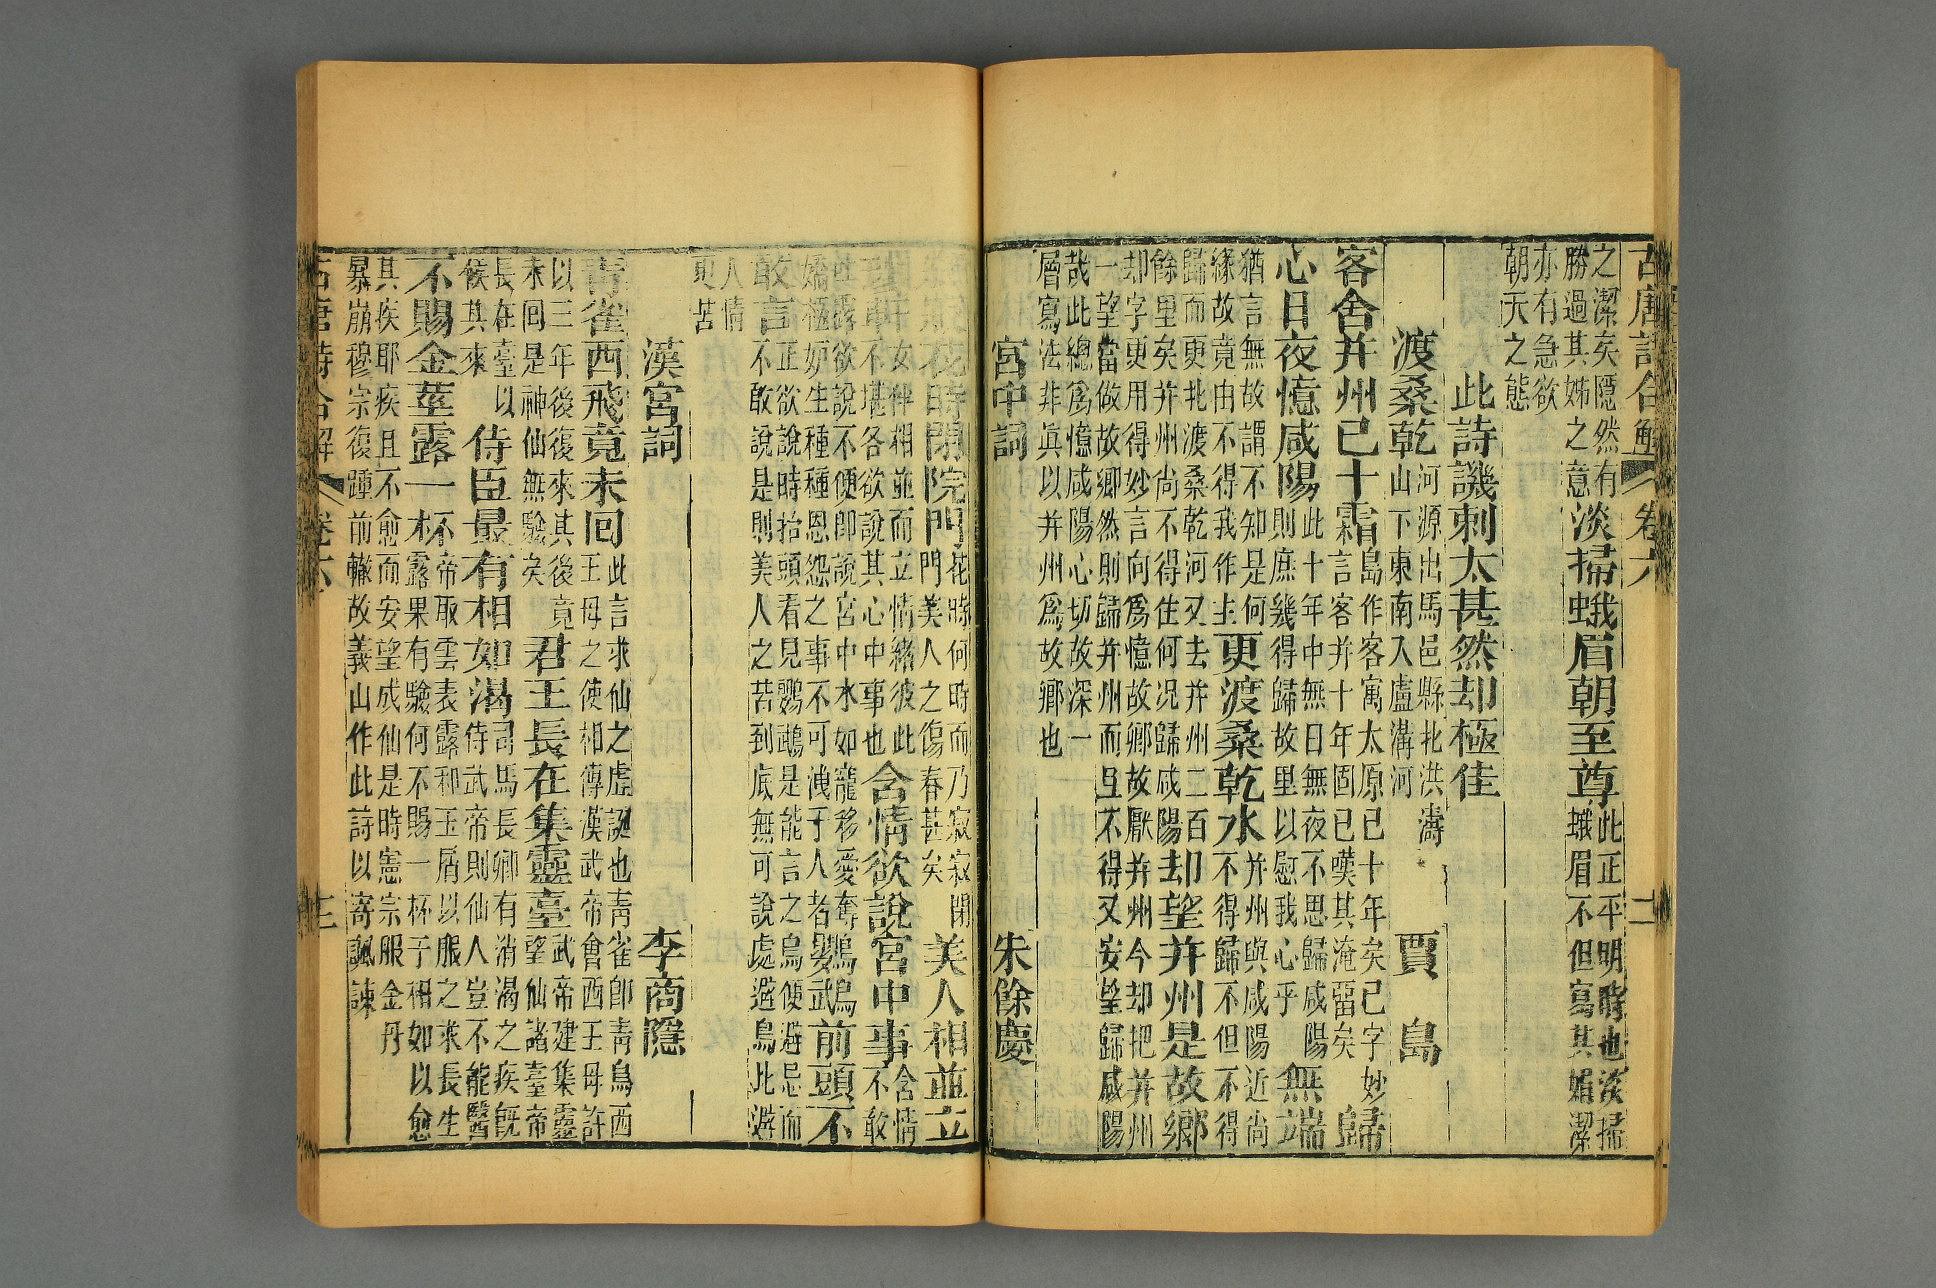 古唐詩合解 卷六
之潔矣隱然有
勝過其姊之意
淡掃蛾眉朝至尊
此正平明時也淡掃
蛾眉不但寫其媚潔
亦有急欲
朝天之態
此詩譏刺太甚然却極佳
渡桑乾
河源出馬邑縣北洪濤
山下東南入盧溝河
賈島
客舍并州已十霜
島作客寓太原已十年矣已字妙
言客并十年固已嘆其淹留矣
歸
心日夜憶咸陽
此十年中無日無夜不思歸咸陽
則庶幾得歸故里以慰我心乎
無端
猶言無故謂不知是何
緣故竟由不得我作主
更渡桑乾水
并州與咸陽近尚
不得歸不但不得
歸而更北渡桑乾河又去并州二百
餘里矣并州尚不得住何况歸咸陽
却望并州是故鄉
却字更用得妙言向爲憶故鄉故厭并州今却把并州
一望當做故鄉然則歸并州而且不得又安望歸咸陽
哉此總爲憶咸陽心切故深一
層寫法非眞以并州爲故鄉也
宮中詞
朱餘慶
花時閉院門
花時何時而乃寂寂閉
門美人之傷春甚矣
美人相並立
女伴相並而立情緒彼此
不堪各欲說其心中事也
含情欲說宮中事
含情
不敢
吐露欲說不便卽說宮中水如寵移愛奪鵡鳥
嬌極妒生種種恩怨之事不可洩于人者
鸚武前頭不
敢言
正欲說時抬頭看見鸚鵡是能言之鳥便避忌而
不敢說是則美人之苦到底無可說處避鳥比避
人情
更苦
漢宮詞
李商隱
青雀西飛竟未回
此言求仙之虛誕也青雀卽青鳥西
王母之使相傳漢武帝會西王母許
以三年後復來其後竟
未回是神仙無驗矣
君王長在集靈臺
武帝建集靈
望仙諸臺帝
長在臺以
候其來
侍臣最有相如渴
司馬長卿有消渴之疾旣
侍武帝則仙人豈不能醫
不賜金莖露一杯
帝取雲表露和玉屑以服之求長生
露果有驗何不賜一杯于相如以愈
其疾耶疾且不愈而安望成仙是時憲宗服金丹
暴崩穆宗復踵前轍故義山作此詩以寄諷諫
古唐詩合解 卷六